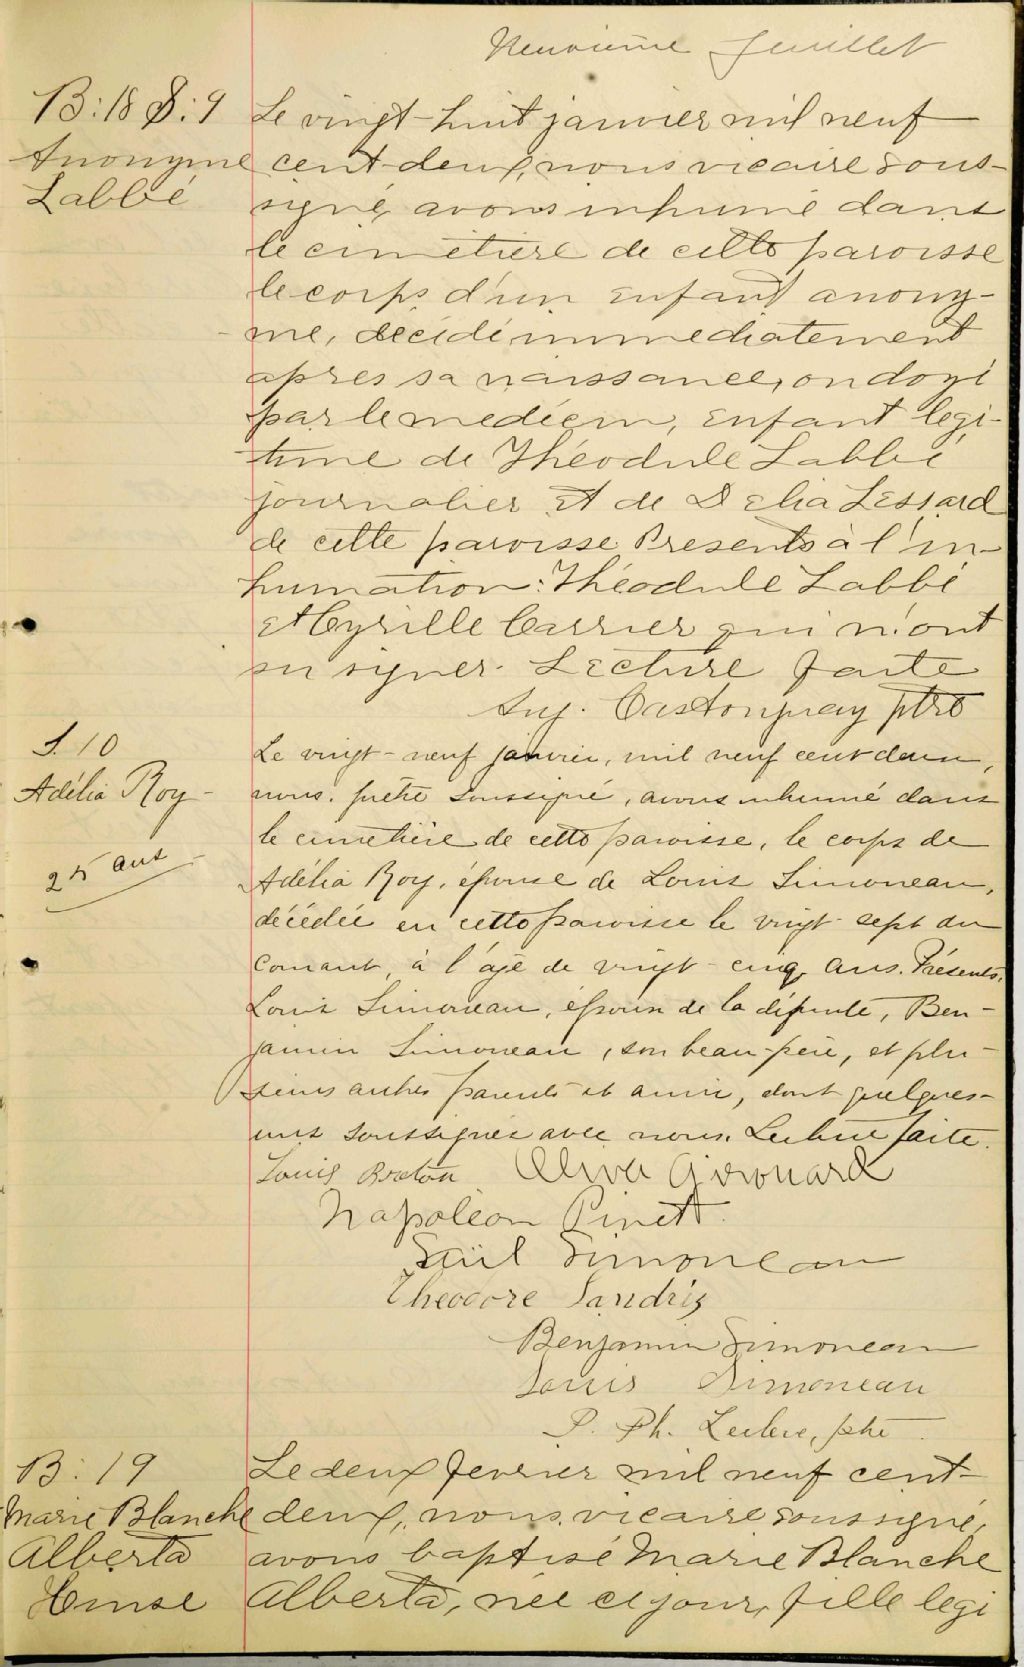 Neuvième feuillet
B: 18 S: 9
Anonyme
Labbé
Le vingt-huit janvier mil neuf
cent-deux, nous vicaire sous-
signé, avons inhumé dans
le cimetière de cette paroisse
le corps d'un enfant anony-
me, décédé immediatement
après sa naissance, ondoyé
par le medecin, enfant légi-
time de Théodule Labbé
journalier et de Delia Lessard
de cette paroisse Presents à l'in-
humation: Théodule Labbé
et Cyrille Carrier qui n'ont
su signer. Lecture faite
Aug. Castonguay ptre
S. 10
Adélia Roy
25 ans
Le vingt-neuf janvier, mil neuf cent deux,
nous, prêtre soussigné, avons inhumé dans
le cimetière de cette paroisse, le corps de
Adélia Roy, épouse de Louis Simoneau,
décédée en cette paroisse le vingt-sept du
courant, à l'âge de vingt-cinq ans. Présents:
Louis Simoneau, époux de la défunte, Ben-
jamin Simoneau, son beau-père, et plu-
sieurs autres parents et amis, dont quelques-
uns soussignés avec nous. Lecture faite.
Louis Breton Girouard
Napoléon
Simoneau
Theodore
Benjamin Simoneau
Louis Simoneau
P. Ph. Leclerc, ptre
B: 19
Marie Blanche
Alberta
Hinse
Le deux fevrier mil neuf cent-
deux, nous vicaire soussigné,
avons baptisé Marie Blanche
Alberta, née ce jour, fille legi